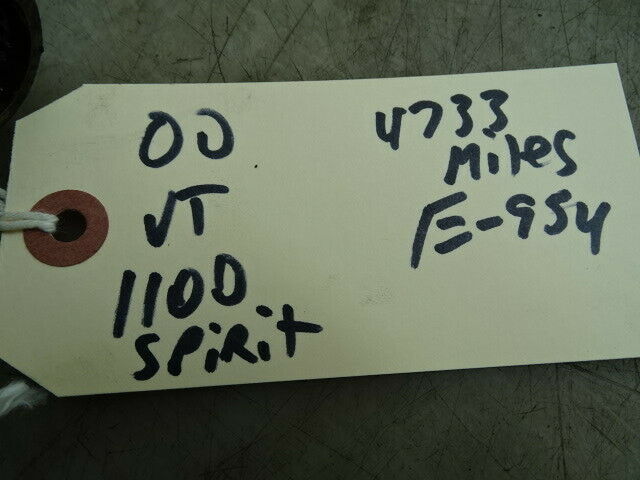 00
VT
1100
SPiRit
4733
Miles
E-954